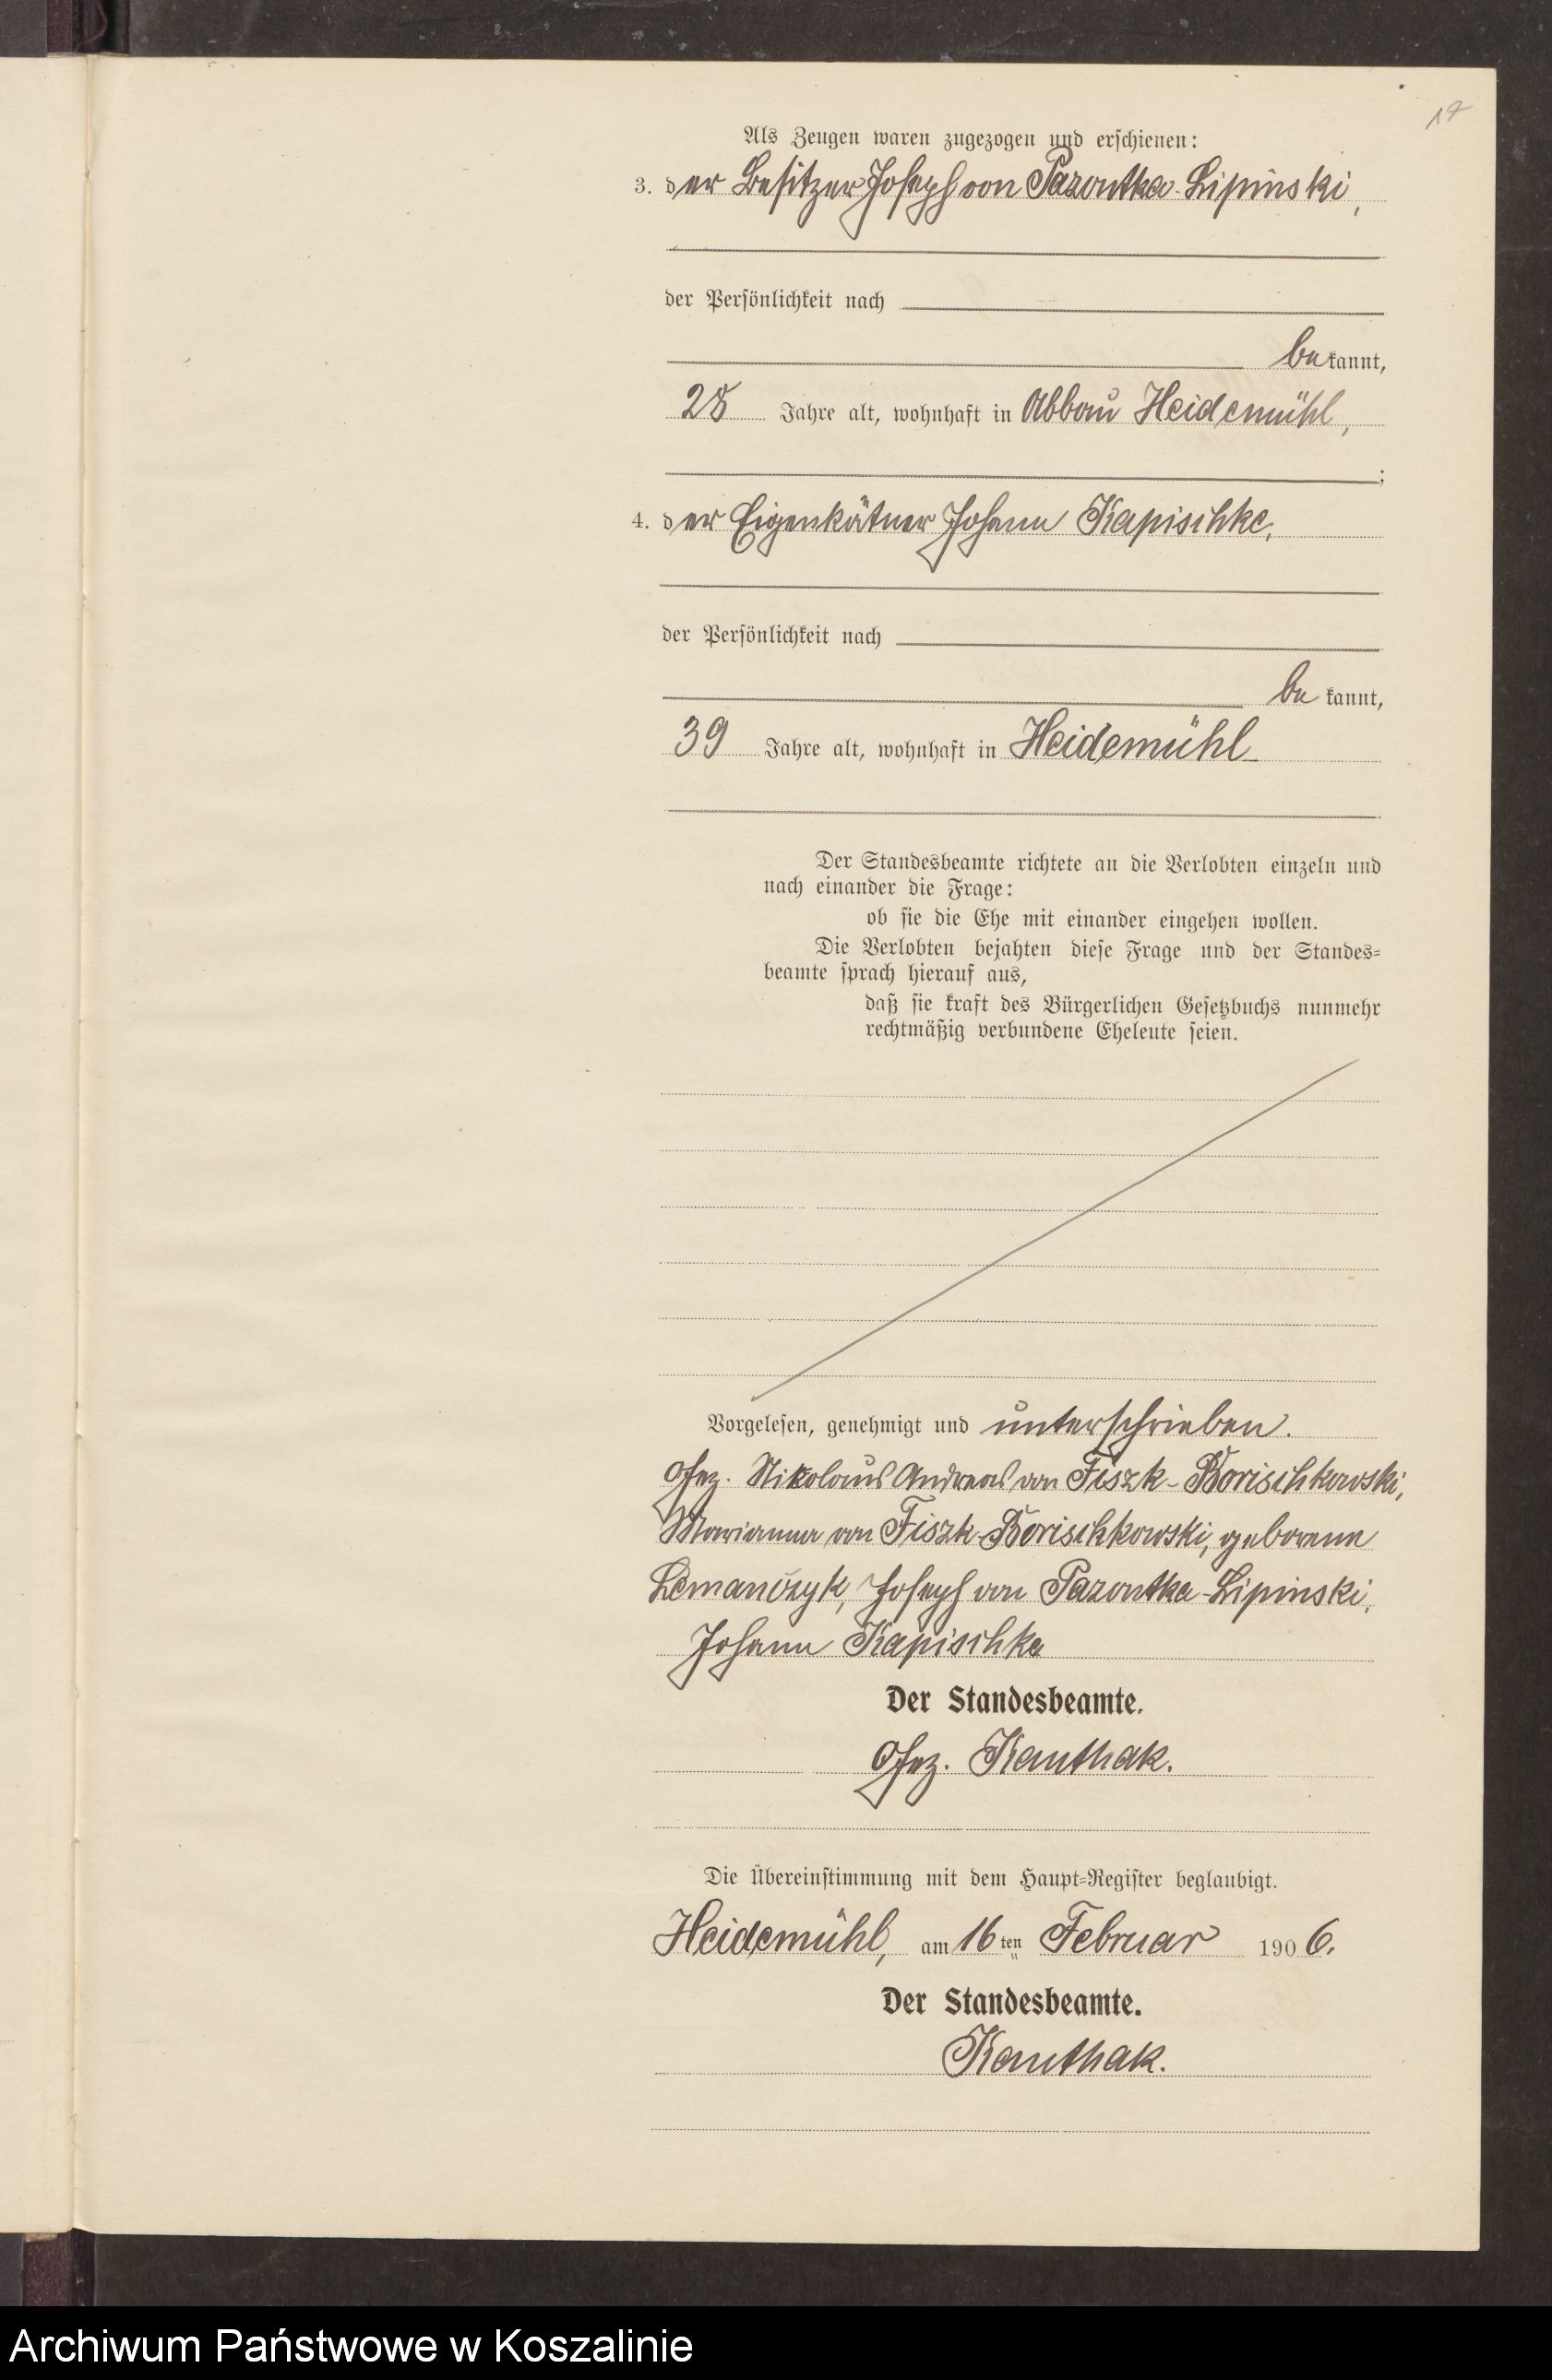 17
Als Zeugen waren zugezogen und erschienen:
3. der Besitzer Joseph von Pazontka-Lipinski,
der Persönlichkeit nach
bekannt,
28 Jahre alt, wohnhaft in Abbau Heidemühl,
;
4. der Eigenkätner Johann Kapischke,
der Persönlichkeit nach
be kannt,
39 Jahre alt, wohnhaft in Heidemühl
Der Standesbeamte richtete an die Verlobten einzeln und
nach einander die Frage:
ob sie die Ehe mit einander eingehen wollen.
Die Verlobten bejahten diese Frage und der Standes-
beamte sprach hierauf aus,
daß sie kraft des Bürgerlichen Gesetzbuchs nunmehr
rechtmäßig verbundene Eheleute seien.
Vorgelesen, genehmigt und unterschrieben.
Gez. Nikolaus Andreas von Fiszk-Borischkowski,
Marianna von Fiszk-Borischkowski, geborene
Lemanczyk, Joseph von Pazontka-Lipinski,
Johann Kapischke
Der Standesbeamte.
Gez. Kauthak.
Die Übereinstimmung mit dem Haupt-Register beglaubigt.
Heidemühl, am 16ten Februar 1906.
Der Standesbeamte.
Kauthak.
Archiwum Państwowe w Koszalinie